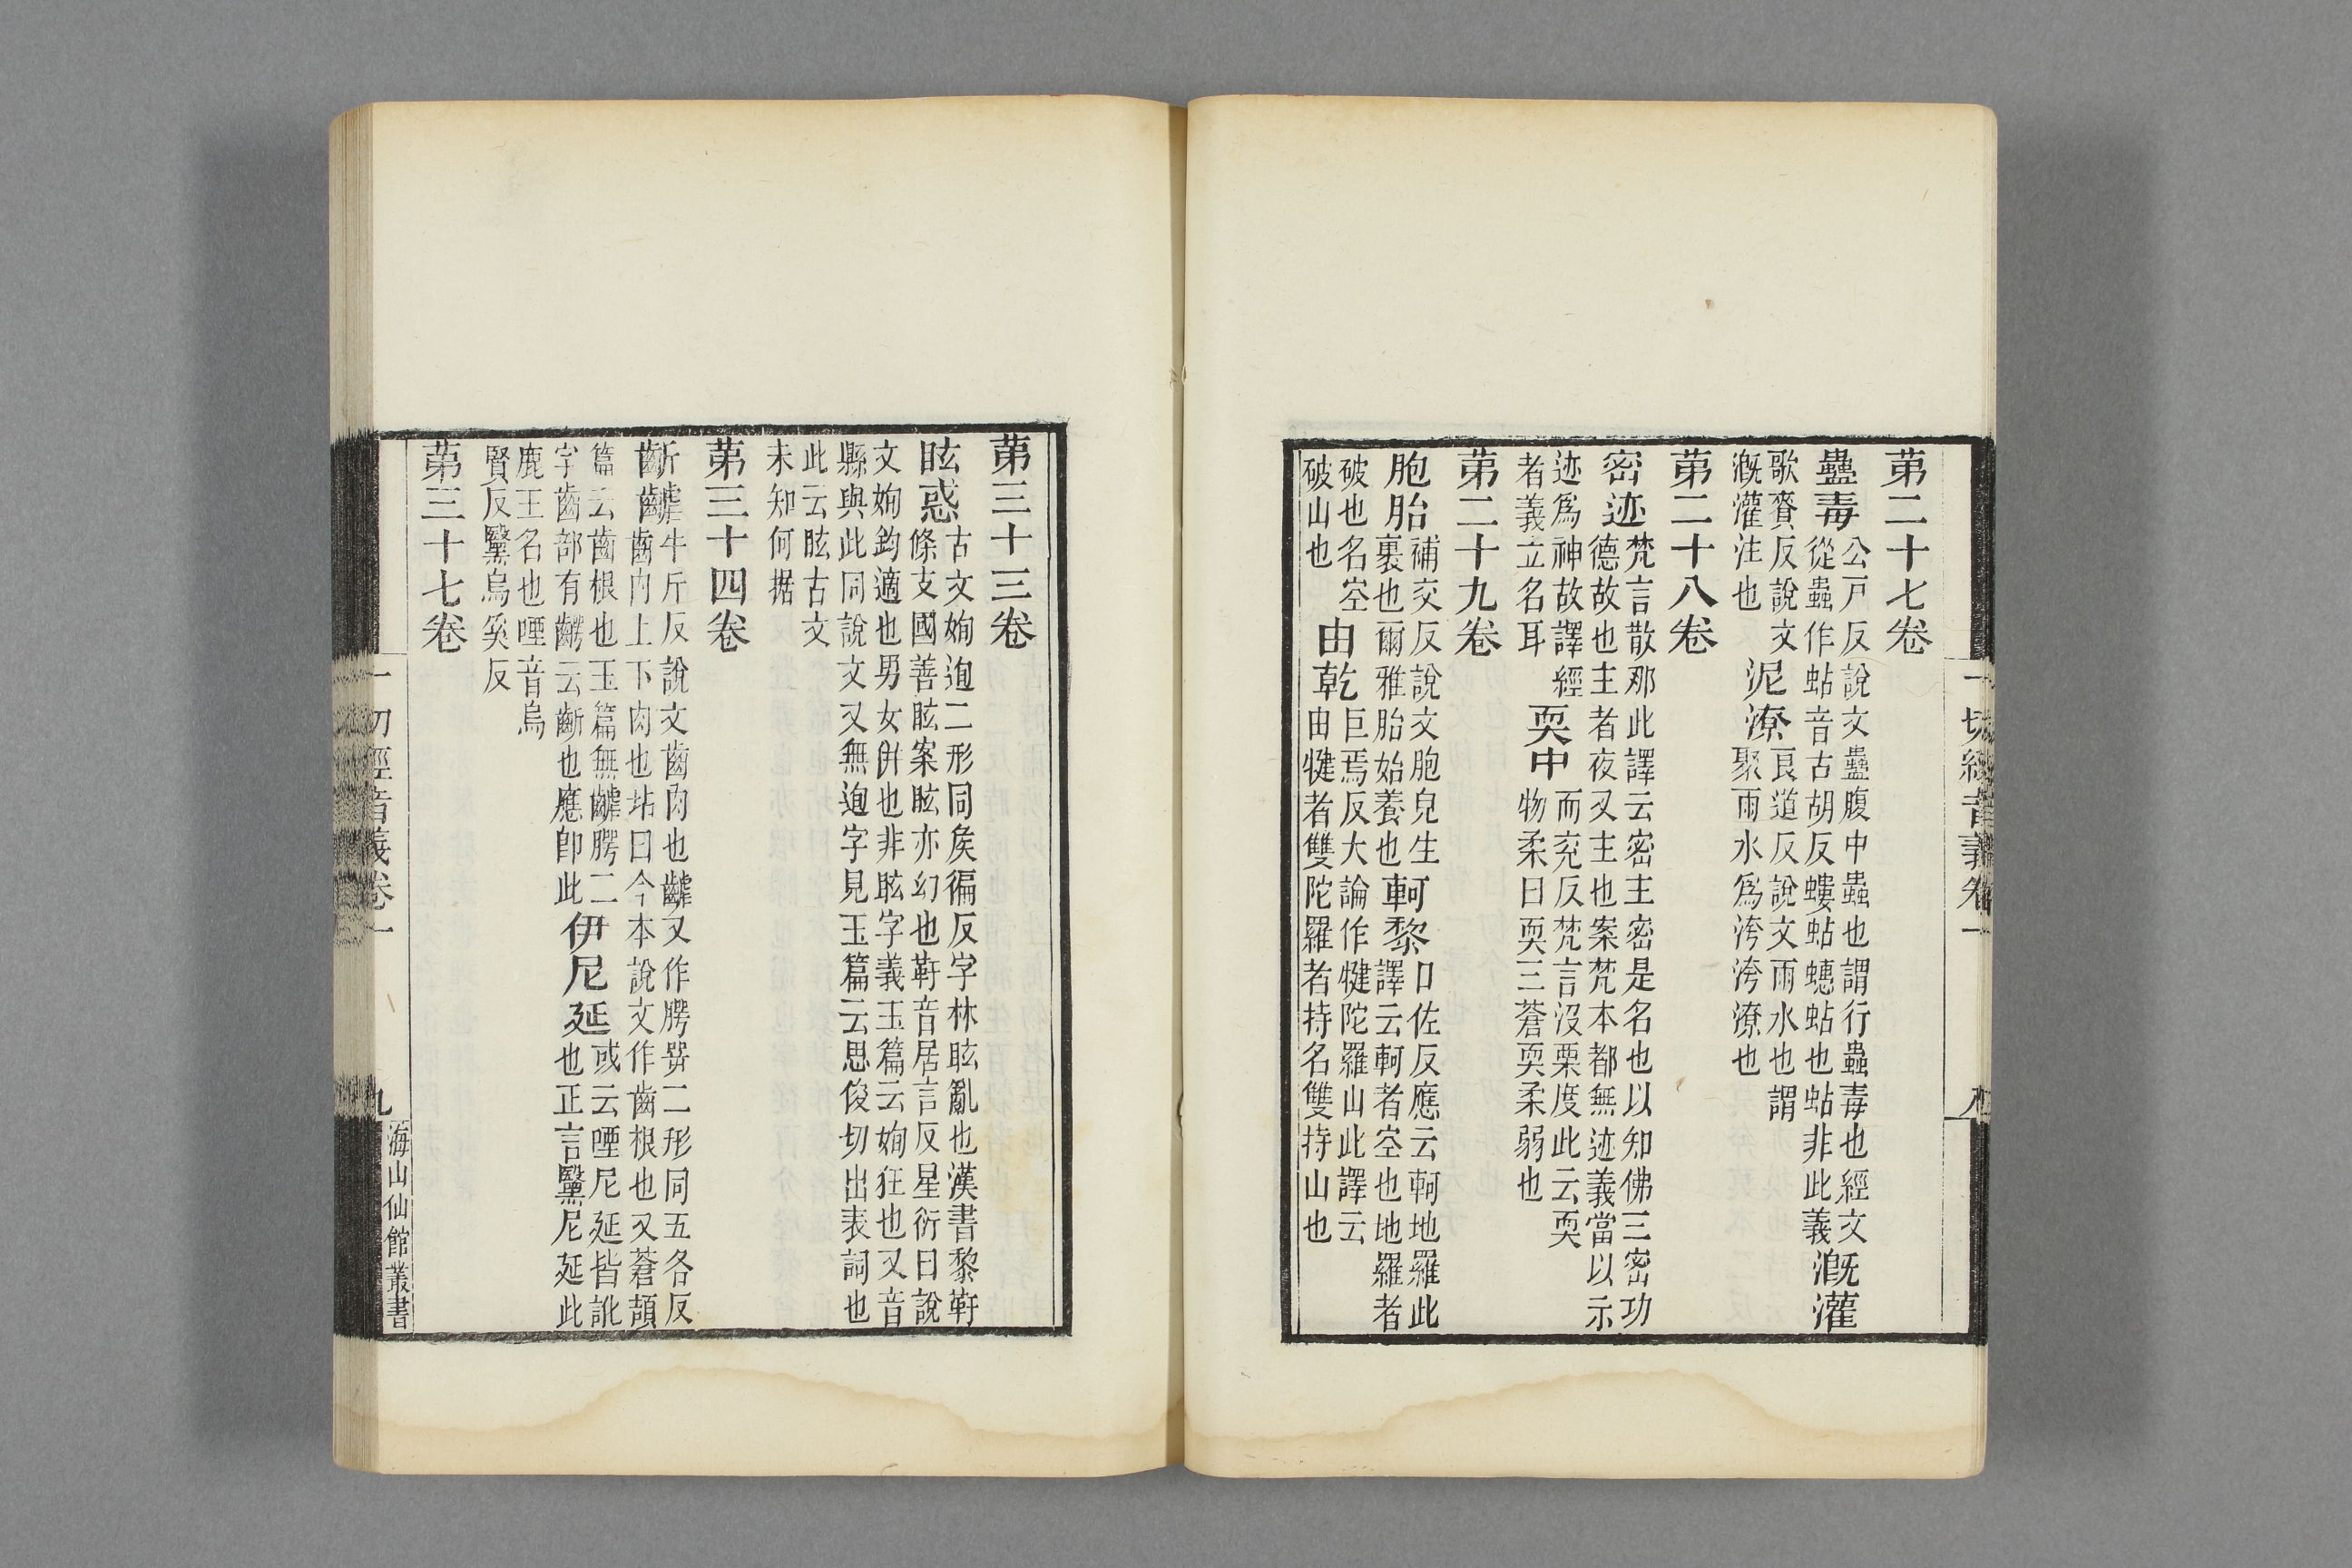 一切經音義卷一
第二十七卷
蠱毒公戸反說文蠱腹中蟲也謂行蟲毒也經文
從蟲作蛄音古胡反螻蛄蟪蛄也蛄非此義溉灌
歌賚反說文
溉灌注也
泥潦良道反說文雨水也謂
聚雨水爲洿洿潦也
第二十八卷
密迹梵言散那此譯云密主密是名也以知佛三密功
德故也主者夜叉主也案梵本都無迹義當以示
迹爲神故譯經
者義立名耳
耎中而兖反梵言沒栗度此云耎
物柔曰耎三蒼耎柔弱也
第二十九卷
胞胎補交反說文胞皃生
裏也爾雅胎始養也
軻黎口佐反應云軻地羅此
譯云軻者空也地羅者
破也名空
破山也
由乾巨焉反大論作犍陀羅山此譯云
由犍者雙陀羅者持名雙持山也
第三十三卷
眩惑古文姰迿二形同矦徧反字林眩亂也漢書黎靬
條支國善眩案眩亦幻也靬音居言反星衍曰說
文姰鈞適也男女倂也非眩字義玉篇云姰狂也又音
縣與此同說文又無迿字見玉篇云思俊切出表詞也
此云眩古文
未知何据
第三十四卷
齗牛斤反說文齒肉也又作腭㖾二形同五各反
齒内上下肉也坫曰今本說文作齒根也又蒼頡
篇云齒根也玉篇無腭二
字齒部有云齗也應卽此
伊尼延或云㖶尼延皆訛
也正言黳尼延此
鹿王名也㖶音烏
賢反黳烏奚反
第三十七卷
一切經音義卷一
九
海山仙館叢書